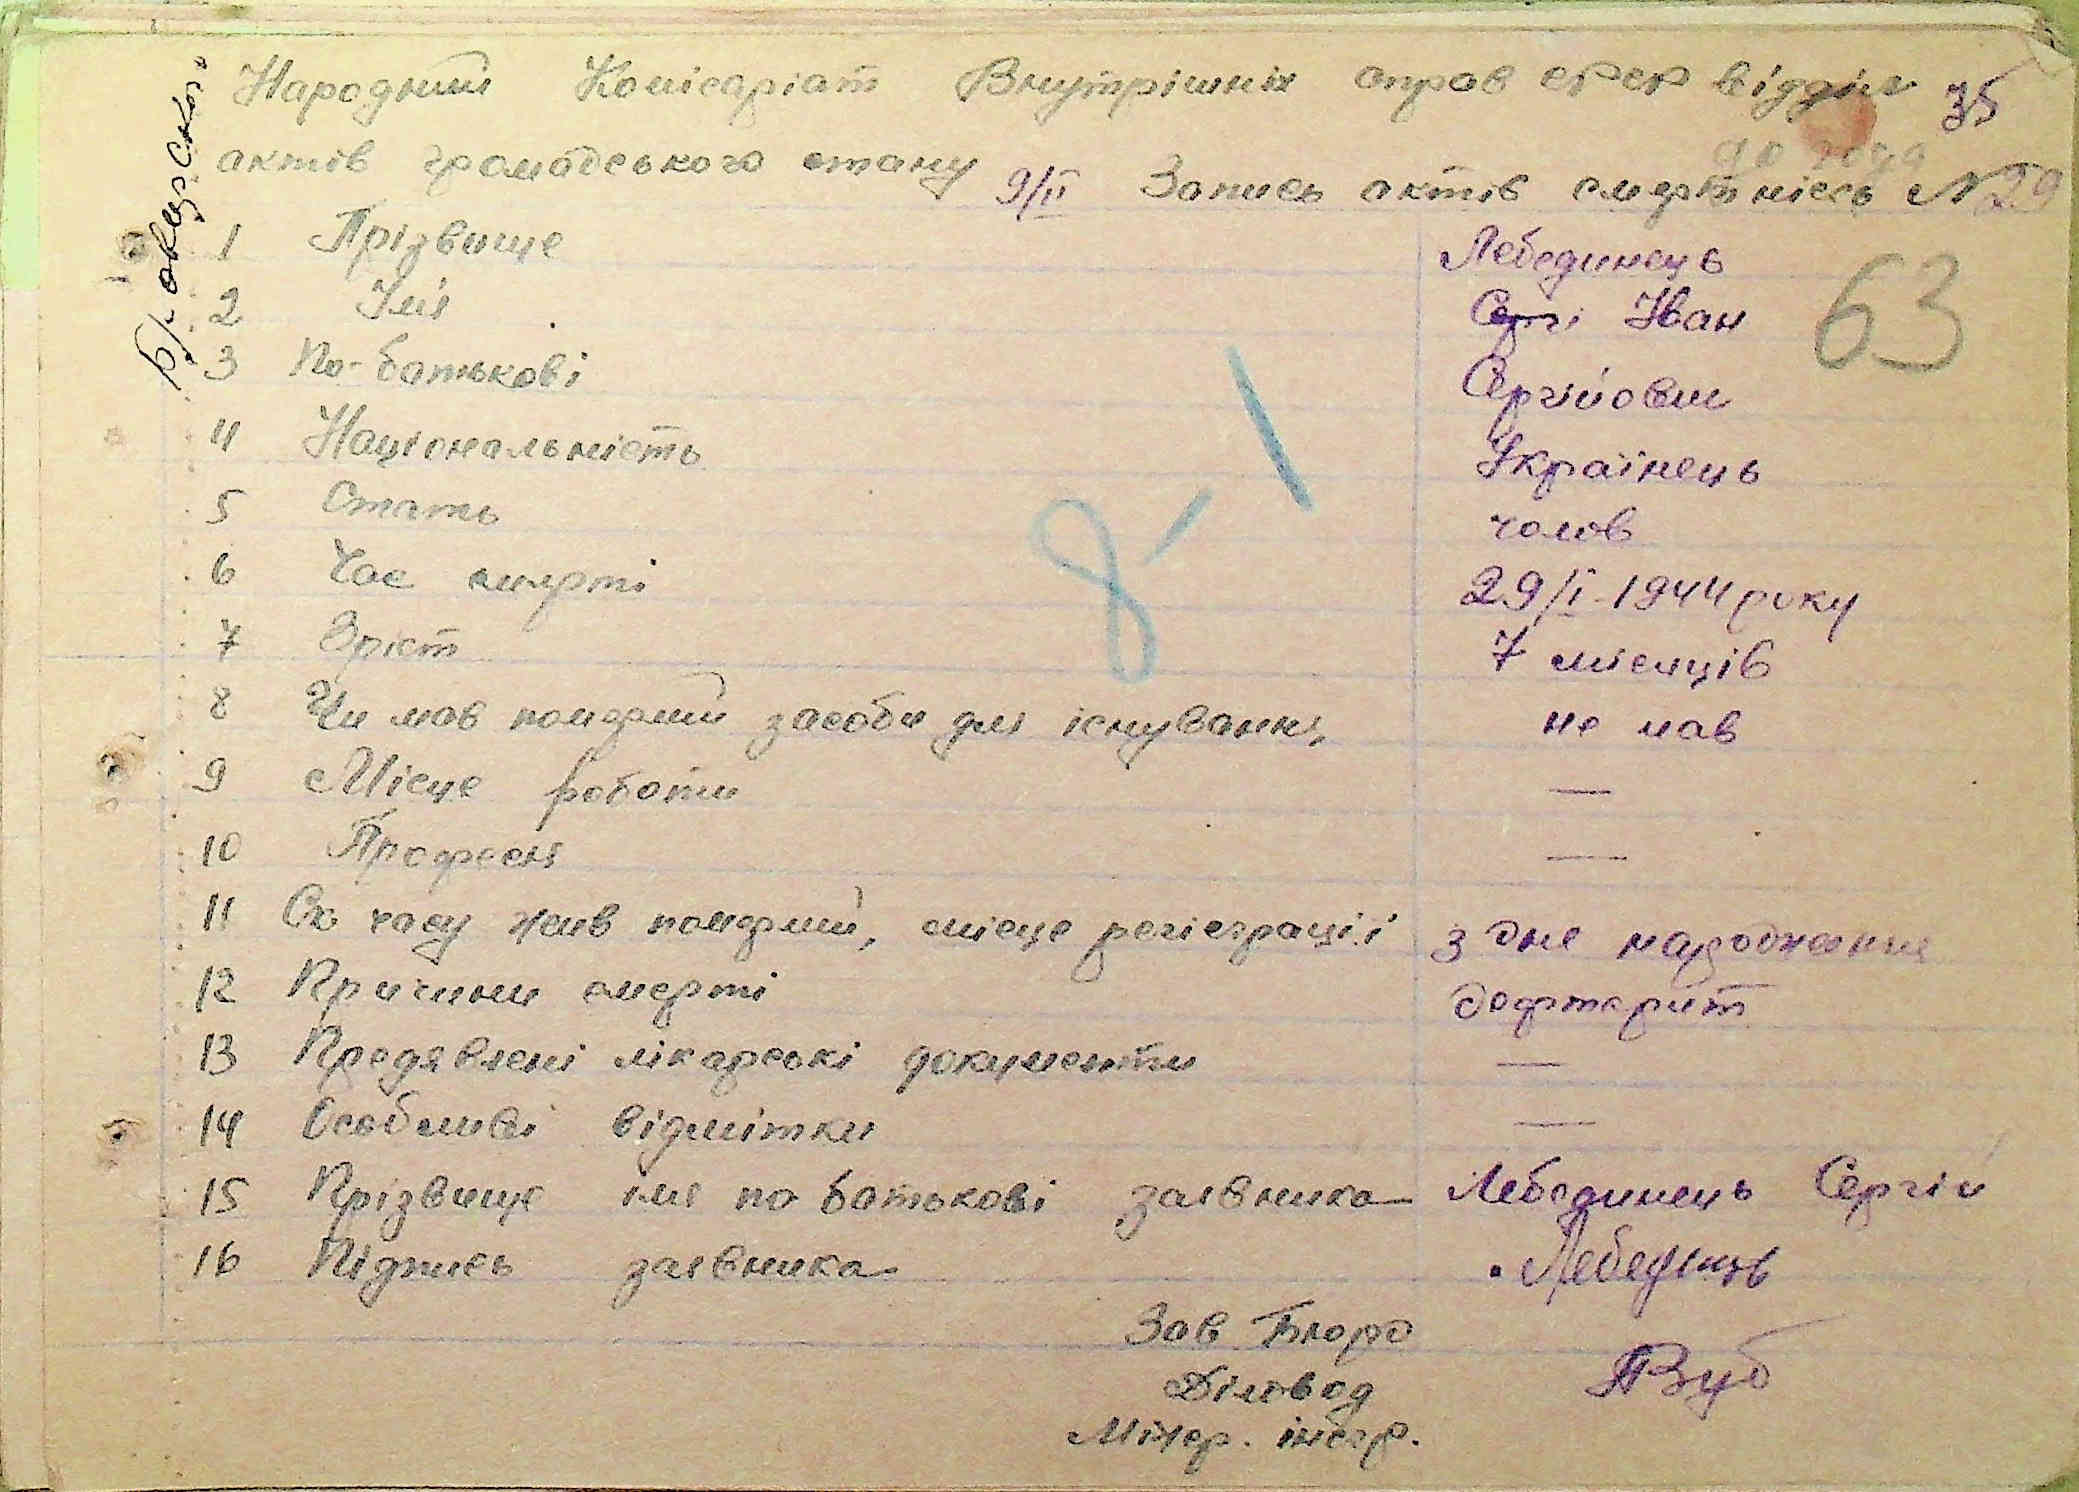 Народний Комісаріат Внутрішніх справ СРСР відділ 35
актів громадського стану 9/II Запись актів смертнісь N 29
1 Прізвище Лебединець
2 Імя Сергі Іван 63
3 По-батькові Сергійович
4 Національність Українець
5 Стать чолов
6 Час смерті 29/I-1944 року
7 Зріст 7 місяців
8 Чи мав померший засоби для існування не мав
9 Місце роботи —
10 Професія —
11 Ск часу жив помермий, місце регістрації з дня народження
12 Причини смерті дофтерит
13 Предявлені лікарські документи —
14 Особливі відмітки —
15 Прізвище імя по батькові заявника Лебединець Сергій
16 Підпись заявника Лебединець
Зав Бюро
Діловод
8-1